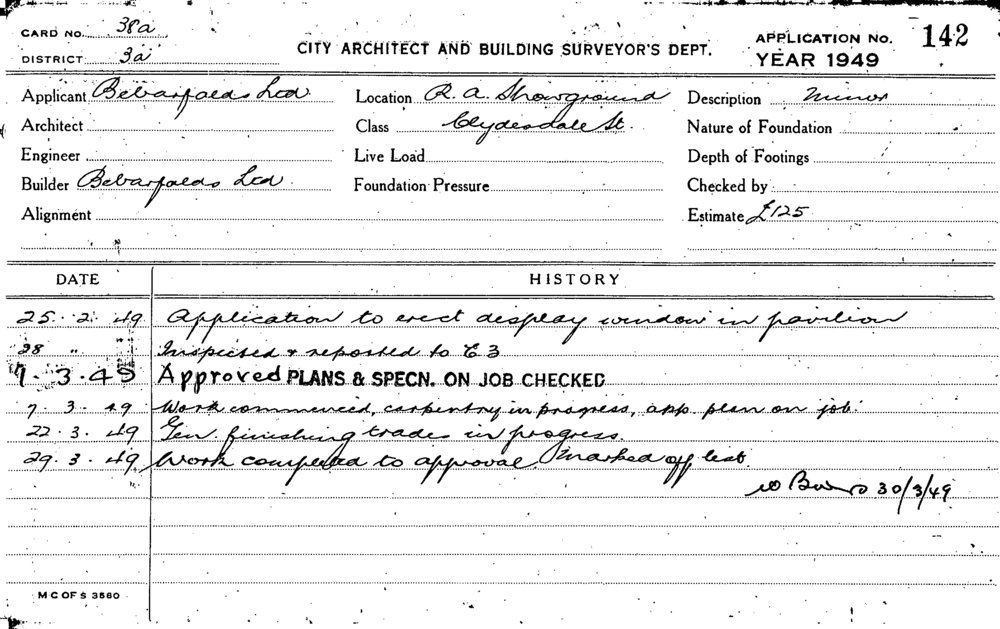 CARD No. 38a
DISTRICT 3a
CITY ARCHITECT AND BUILDING SURVEYOR'S DEPT.
APPLICATION No. 142
YEAR 1949
Applicant Bebarfalds Ltd. Location R. A. Showground Description Minor
Architect Class Clydesdale St. Nature of Foundation
Engineer Live Load Depth of Footings
Builder Bebarfalds Ltd. Foundation Pressure Checked by
Alignment Estimate £125
DATE HISTORY
25. 2. 49 Application to erect display window in pavilion
28 " Inspected & reported to E3
7. 3. 49 Approved PLANS & SPECN. ON JOB CHECKED
7. 3. 49 Work commenced, carpentry in progress, app. plan on job.
22. 3. 49 Gen. finishing trades in progress.
29. 3. 49 Work completed to approval. Marked off list.
30/3/49
M C OF S 3560